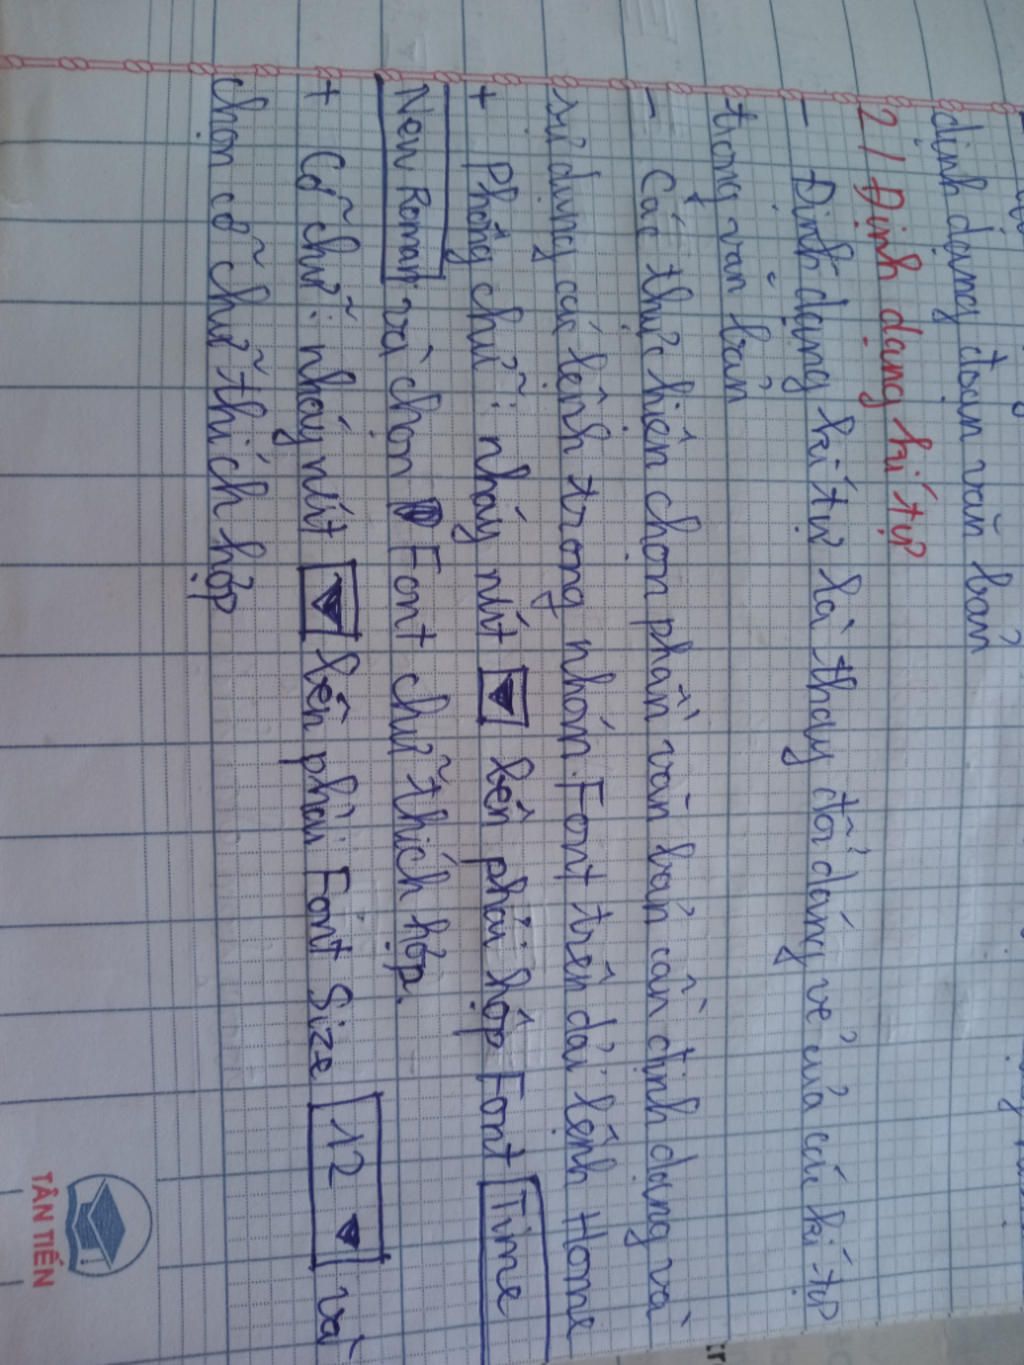 định dạng đoạn văn bản
2/ Định dạng kí tự
- Định dạng kí tự là thay đổi dáng vẻ của các kí tự
trong văn bản
- Các thực hiện chọn phần văn bản cần định dạng và
sử dụng các lệnh trong nhón Font trên dải lệnh Home
+ Phông chữ: nháy nút ▼ bên phải hộp Font Time
New Roman và chọn Font chữ thích hợp.
+ Cỡ chữ: nháy nút ▼ bên phải Font Size 12 ▼ và
chọn cỡ chữ thích hợp
TÂN TIẾN